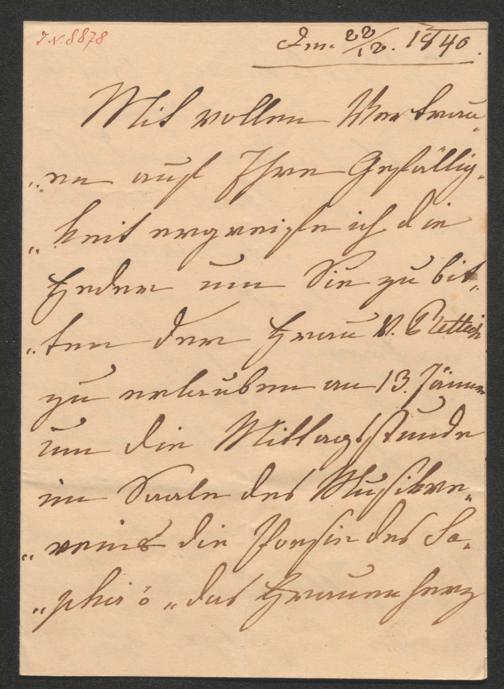 J.N 8878
Am. 22/12. 1840.
Mit vollen Vertrau„
„en auf Ihre Gefällig„
„keit ergreife ich die
Feder um Sie zu bit„
„ten der Frau V. Rettich
zu erlauben am 13. Jänner
um die Mittagsstunde
im Saale des Musikve„
„reins die Poesie des Sa„
„phir's „das Frauenherz